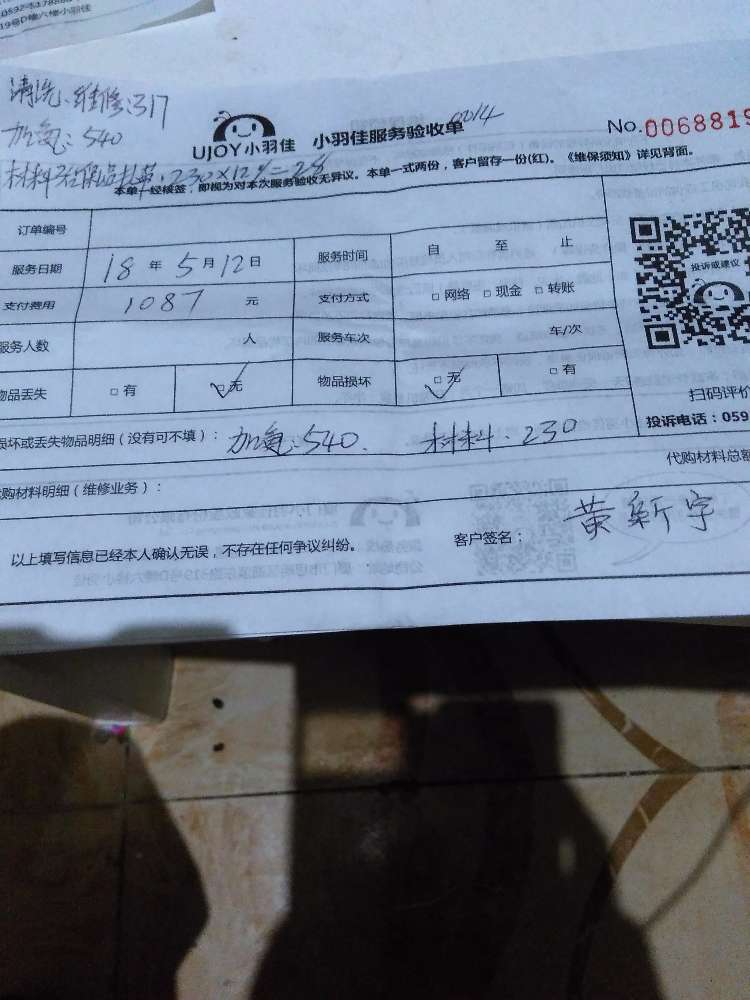 19号D幢六楼小羽佳
清洗、维修:317
加氢:540
230×12%=28
UJOY小羽佳 小羽佳服务验收单
No.0068819
本单一经核签,即视为对本次服务验收无异议。本单一式两份,客户留存一份(红)。《维保须知》详见背面。
订单编号
服务日期 18 年 5 月 12 日 服务时间 自 至 止
支付费用 1087 元 支付方式 □ 网络 □ 现金 □ 转账
服务人数 人 服务车次 车/次
物品丢失 □ 有 □ 无 物品损坏 □ 无 □ 有
投诉或建议
扫码评价
投诉电话:059
损坏或丢失物品明细(没有可不填): 加氢:540. 材料:230
代购材料总额
代购材料明细(维修业务):
以上填写信息已经本人确认无误,不存在任何争议纠纷。
客户签名: 黄新宇